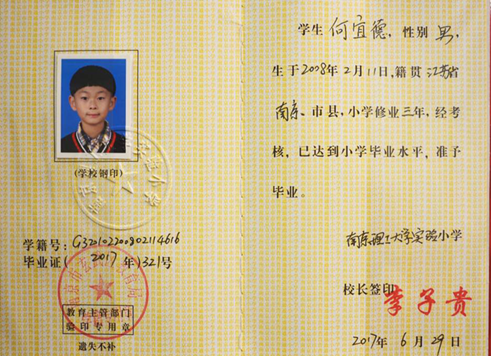 (学校钢印)
学籍号：G320102200802114616
毕业证（2017年）321号
教育主管部门
验印专用章
遗失不补
学生 何宜德，性别 男，
生于2008年2月11日，籍贯 江苏省
南京、市县，小学修业三年，经考
核，已达到小学毕业水平，准予
毕业。
南京理工大学实验小学
校长签印 李子贵
2017年6月29日